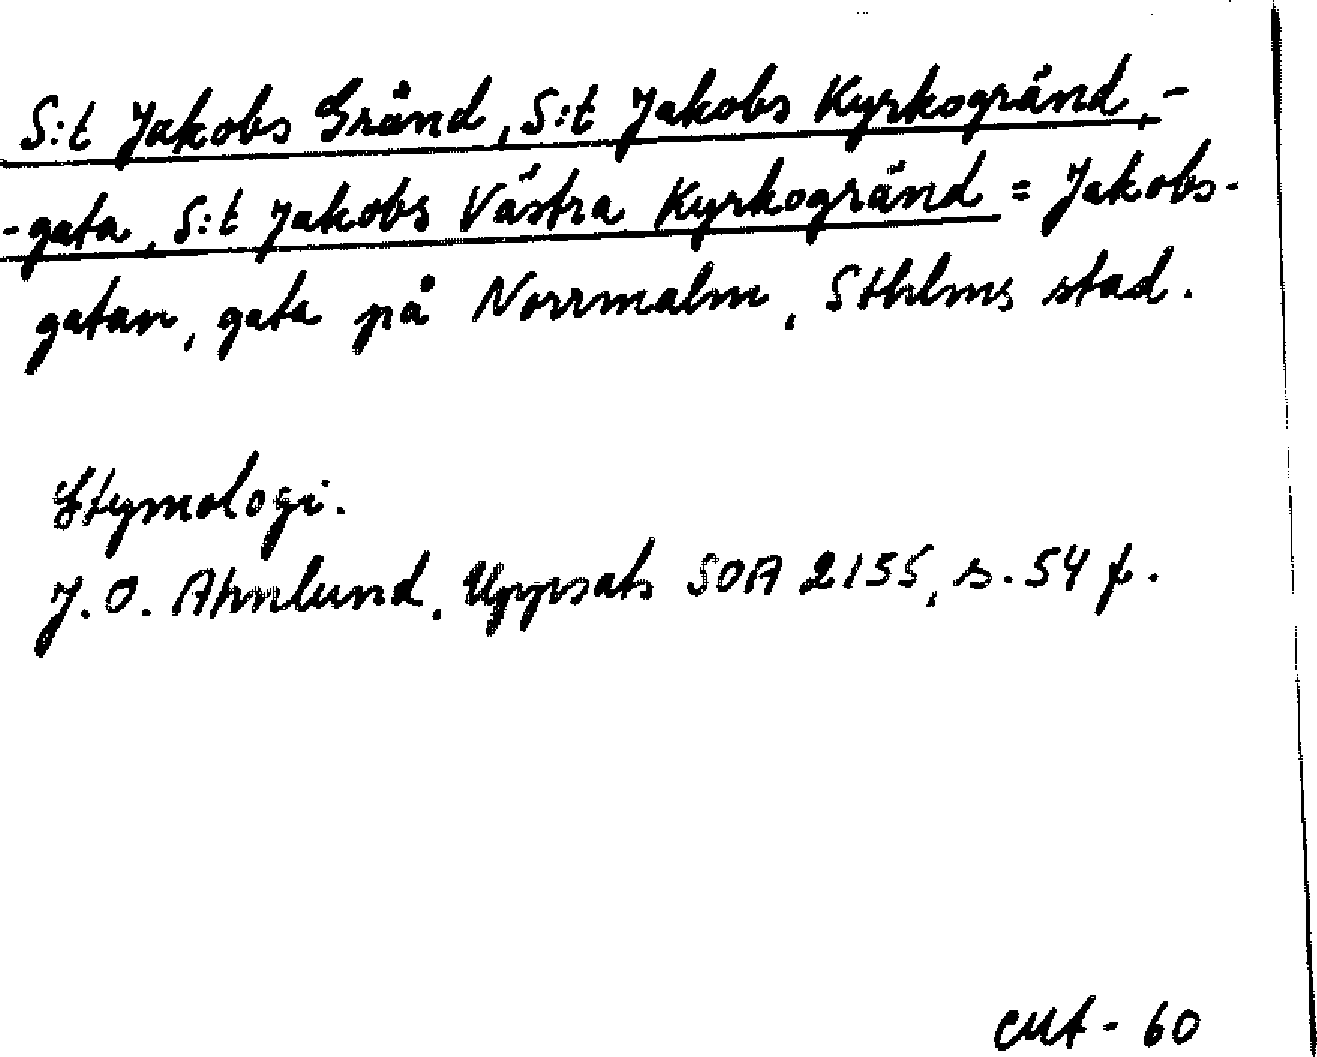 S:t Jakobs Gränd, S:t Jakobs Kyrkogränd, -
-gata, S:t Jakobs Västra Kyrkogränd = Jakobs-
gatan, gata på Norrmalm, Sthlms stad.
Etymologi.
J. O. Ahnlund, Uppsats SOA 2155, s. 54 f.
CMA - 60